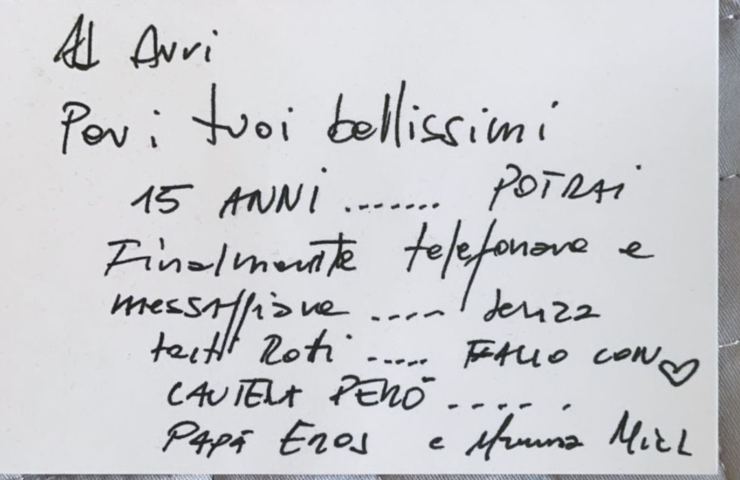 Ad Auri
Per i tuoi bellissimi
15 ANNI ....... POTRAI
Finalmente telefonare e
messaggiare .... senza
tasti Rotti ..... FALLO CON
CAUTELA PERÒ ......
PAPÀ EROS e Mamma MICL